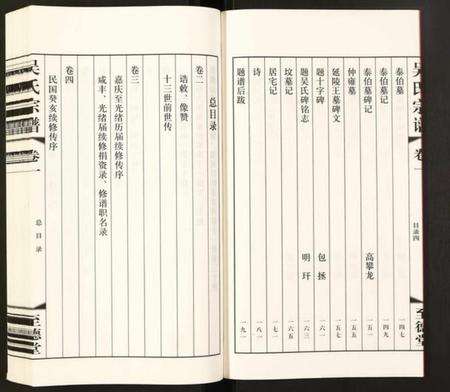 吴氏宗谱
卷一
目录四
至德堂
泰伯墓 一四七
泰伯墓记 一四九
泰伯墓碑记 高攀龙 一五一
仲雍墓 一五五
延陵王墓碑文 一五七
题十字碑 包拯 一六一
题吴氏碑铭志 明玕 一六三
坟墓记 一六五
居宅记 一七一
诗 一八一
题谱后跋 一九一
总目录
卷二
诰敕、像赞
十三世前世传
卷三
嘉庆至光绪历届续修传序
咸丰、光绪届续修捐资录、修谱职名录
卷四
民国癸亥续修传序
吴氏宗谱
卷一
总目录
至德堂